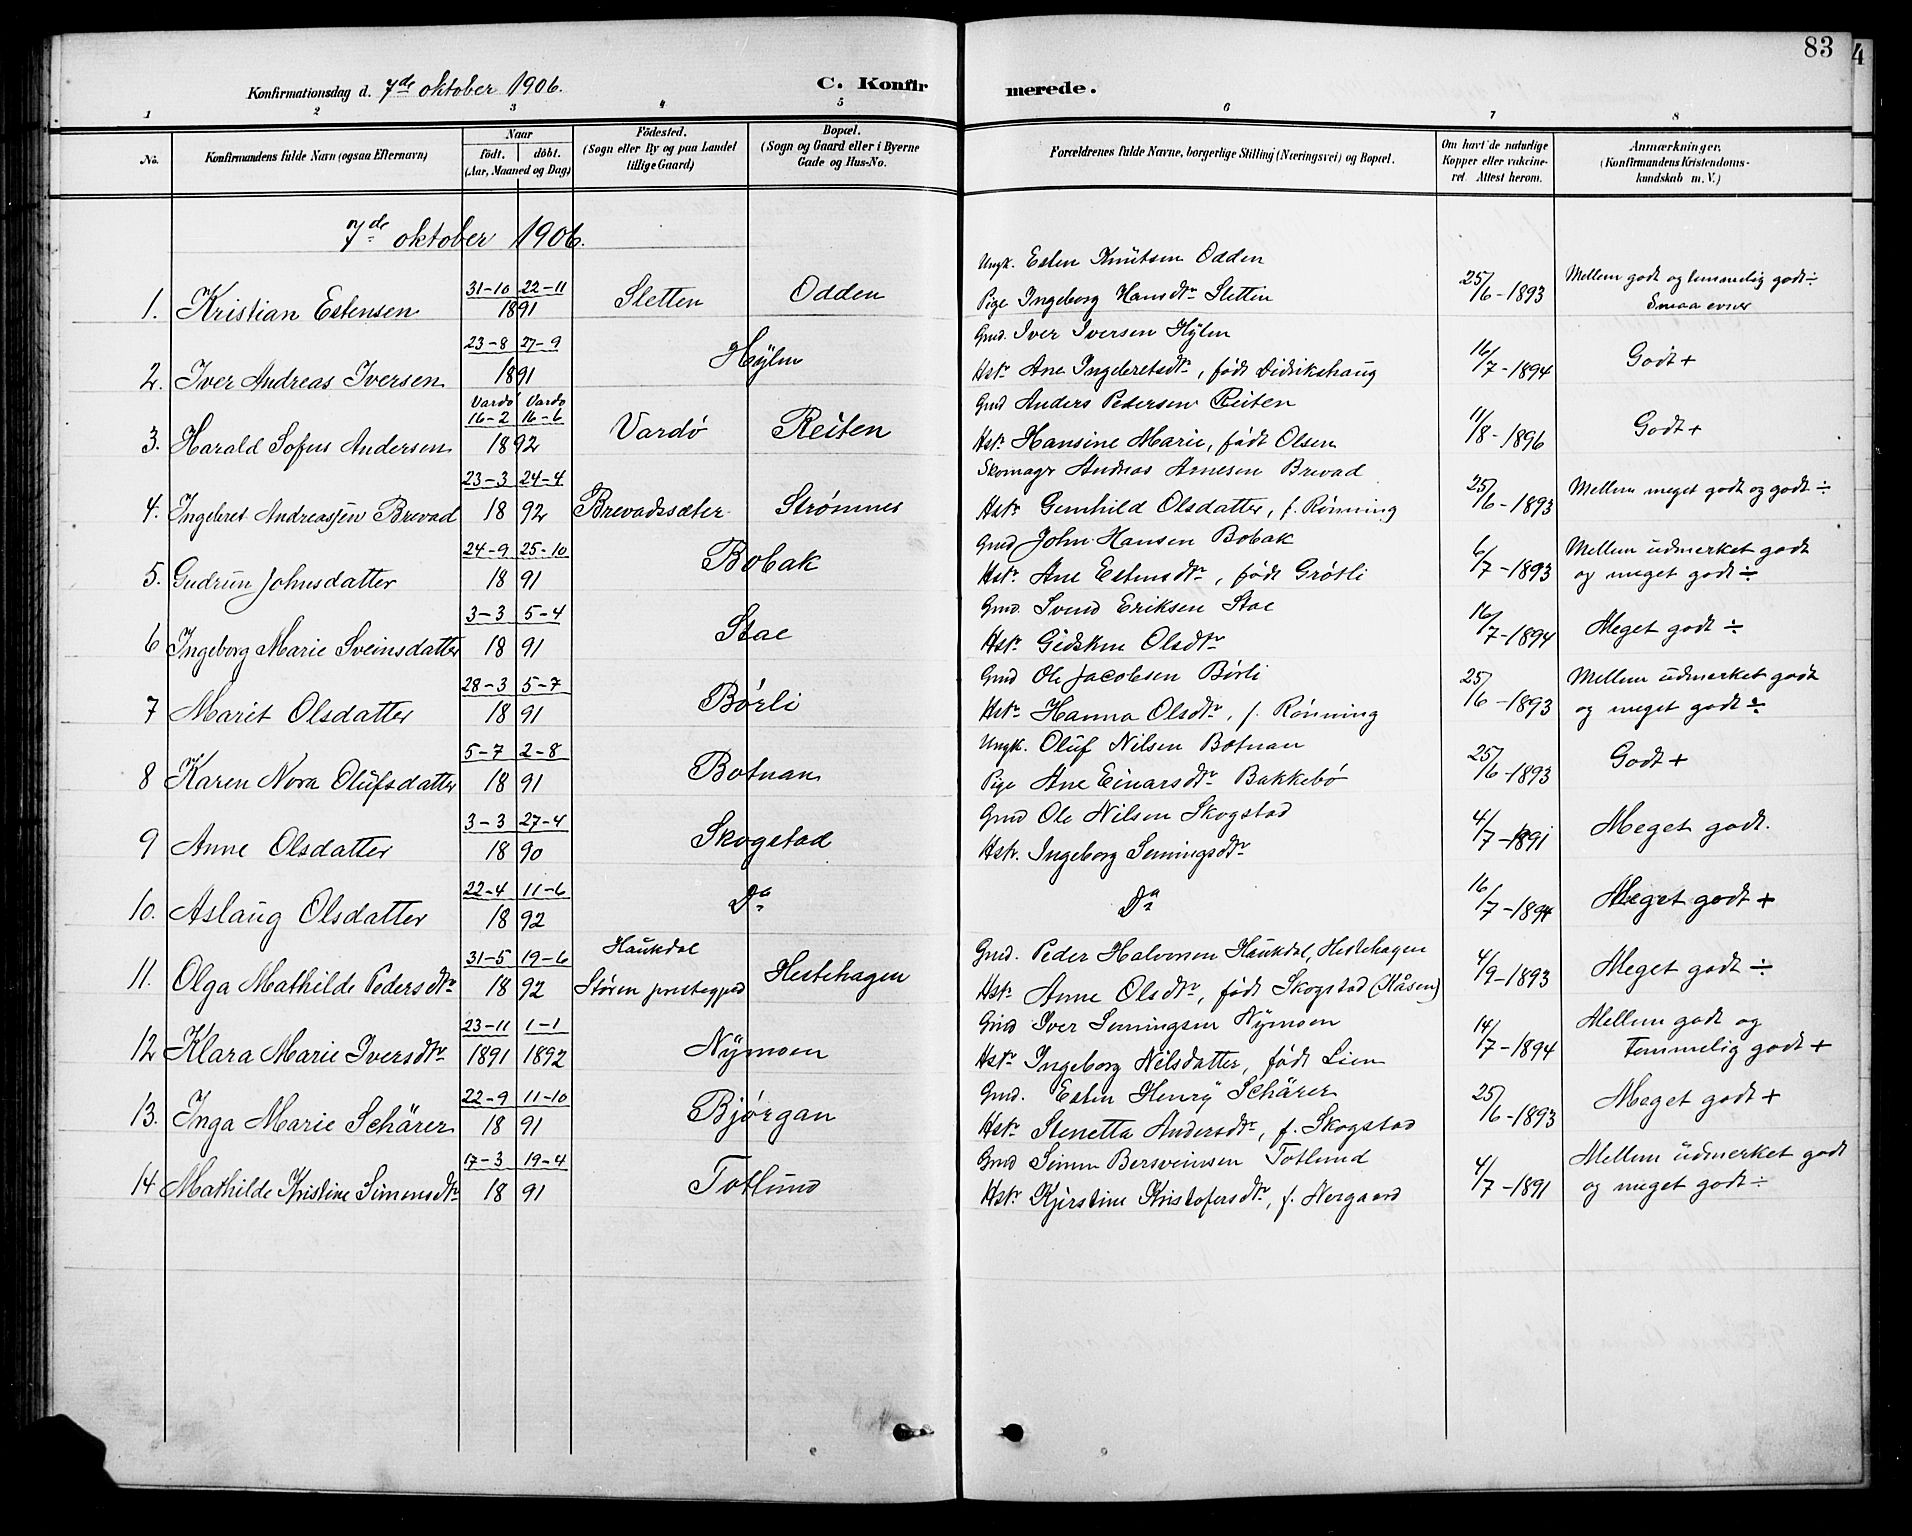 83
4
Konfirmationsdag d. 7de oktober 1906.
C. Konfirmerede.
1 2 3 4 5 6 7 8
No. Konfirmandens fulde Navn (ogsaa Efternavn)
Naar
født. døbt.
(Aar, Maaned og Dag)
Fødested.
(Sogn eller By og paa Landet
tillige Gaard)
Bopæl.
(Sogn og Gaard eller i Byerne
Gade og Hus-No.
Forældrenes fulde Navne, borgerlige Stilling (Næringsvei) og Bopæl.
Om havt de naturlige
Kopper eller vakcine-
ret. Attest herom.
Anmærkninger.
(Konfirmandens Kristendoms-
kundskab m. V.)
7de oktober 1906.
Ungk. Esten Knutsen Odden
1. Kristian Estensen 31-10 22-11 1891 Sletten Odden Pige Ingeborg Hansdtr Sletten 25/6-1893 Mellem godt og temmelig godt ÷
Smaa evner
Gmd. Iver Iversen Hÿlm
2. Iver Andreas Iversen 23-8 27-9 1891 Hÿlm Hstr Ane Ingebretsdtr, født Didrikshaug 16/7-1894 Godt +
Vardø Vardø Gmd Anders Pedersen Reiten
3. Harald Sofus Andersen 16-2 16-6 1892 Vardø Reiten Hstr Hansine Marie, født Olsen 11/8-1896 Godt +
Skomagr Andreas Arnesen Brevad
4. Ingebret Andreassen Brevad 23-3 24-4 1892 Brevadsæter Strømnes Hstr Gunhild Olsdatter, f. Rønning 25/6-1893 Mellem meget godt og godt ÷
Gmd John Hansen Bobak
5. Gudrun Johnsdatter 24-9 25-10 1891 Bobak Hstr. Ane Estensdtr, født Grøtli 6/7-1893 Mellem udmerket godt
og meget godt ÷
Gmd. Svend Eriksen Stae
6 Ingeborg Marie Sveinsdatter 3-3 5-4 1891 Stae Hstr Gidsken Olsdtr 16/7-1894 Meget godt ÷
Gmd Ole Jacobsen Børli
7 Marit Olsdatter 28-3 5-7 1891 Børli Hstr Hanna Olsdtr, f. Rønning 25/6-1893 Mellem udmerket godt
og meget godt ÷
Ungk. Oluf Nilsen Botnan
8 Karen Nora Olufsdatter 5-7 2-8 1891 Botnan Pige Ane Einarsdtr Bakkebø 25/6-1893 Godt +
Gmd Ole Nilsen Skogstad
9 Anne Olsdatter 3-3 27-4 1890 Skogstad Hstr. Ingeborg Semingsdtr 4/7-1891 Meget godt.
10. Aslaug Olsdatter 22-4 11-6 1892 Do Do 16/7-1894 Meget godt +
Gmd. Peder Halvorsen Haukdal, Hestehagen
11. Olga Mathilde Pedersdtr 31-5 19-6 1892 Haukdal
Støren prestegjed Hestehagen Hstr Anne Olsdtr, født Skogstad (Kåsen) 4/9-1893 Meget godt ÷
Gmd Iver Semingsen Nÿmoen
12 Klara Marie Iversdtr 23-11 1-1 1891 1892 Nÿmoen Hstr Ingeborg Nilsdatter, født Lien 14/7-1894 Mellem godt og
Temmelig godt +
Gmd. Esten Henrÿ Schärer
13. Inga Marie Schärer 22-9 11-10 1891 Bjørgan Hstr Stenetta Andersdtr, f. Skogstad 25/6-1893 Meget godt +
Gmd Simen Bersveinsen Totlund
14 Mathilde Kristine Simensdtr 17-3 19-4 1891 Totlund Hstr Kjerstine Kristofersdtr, f. Norgaard 4/7-1891 Mellem udmerket godt
og meget godt ÷